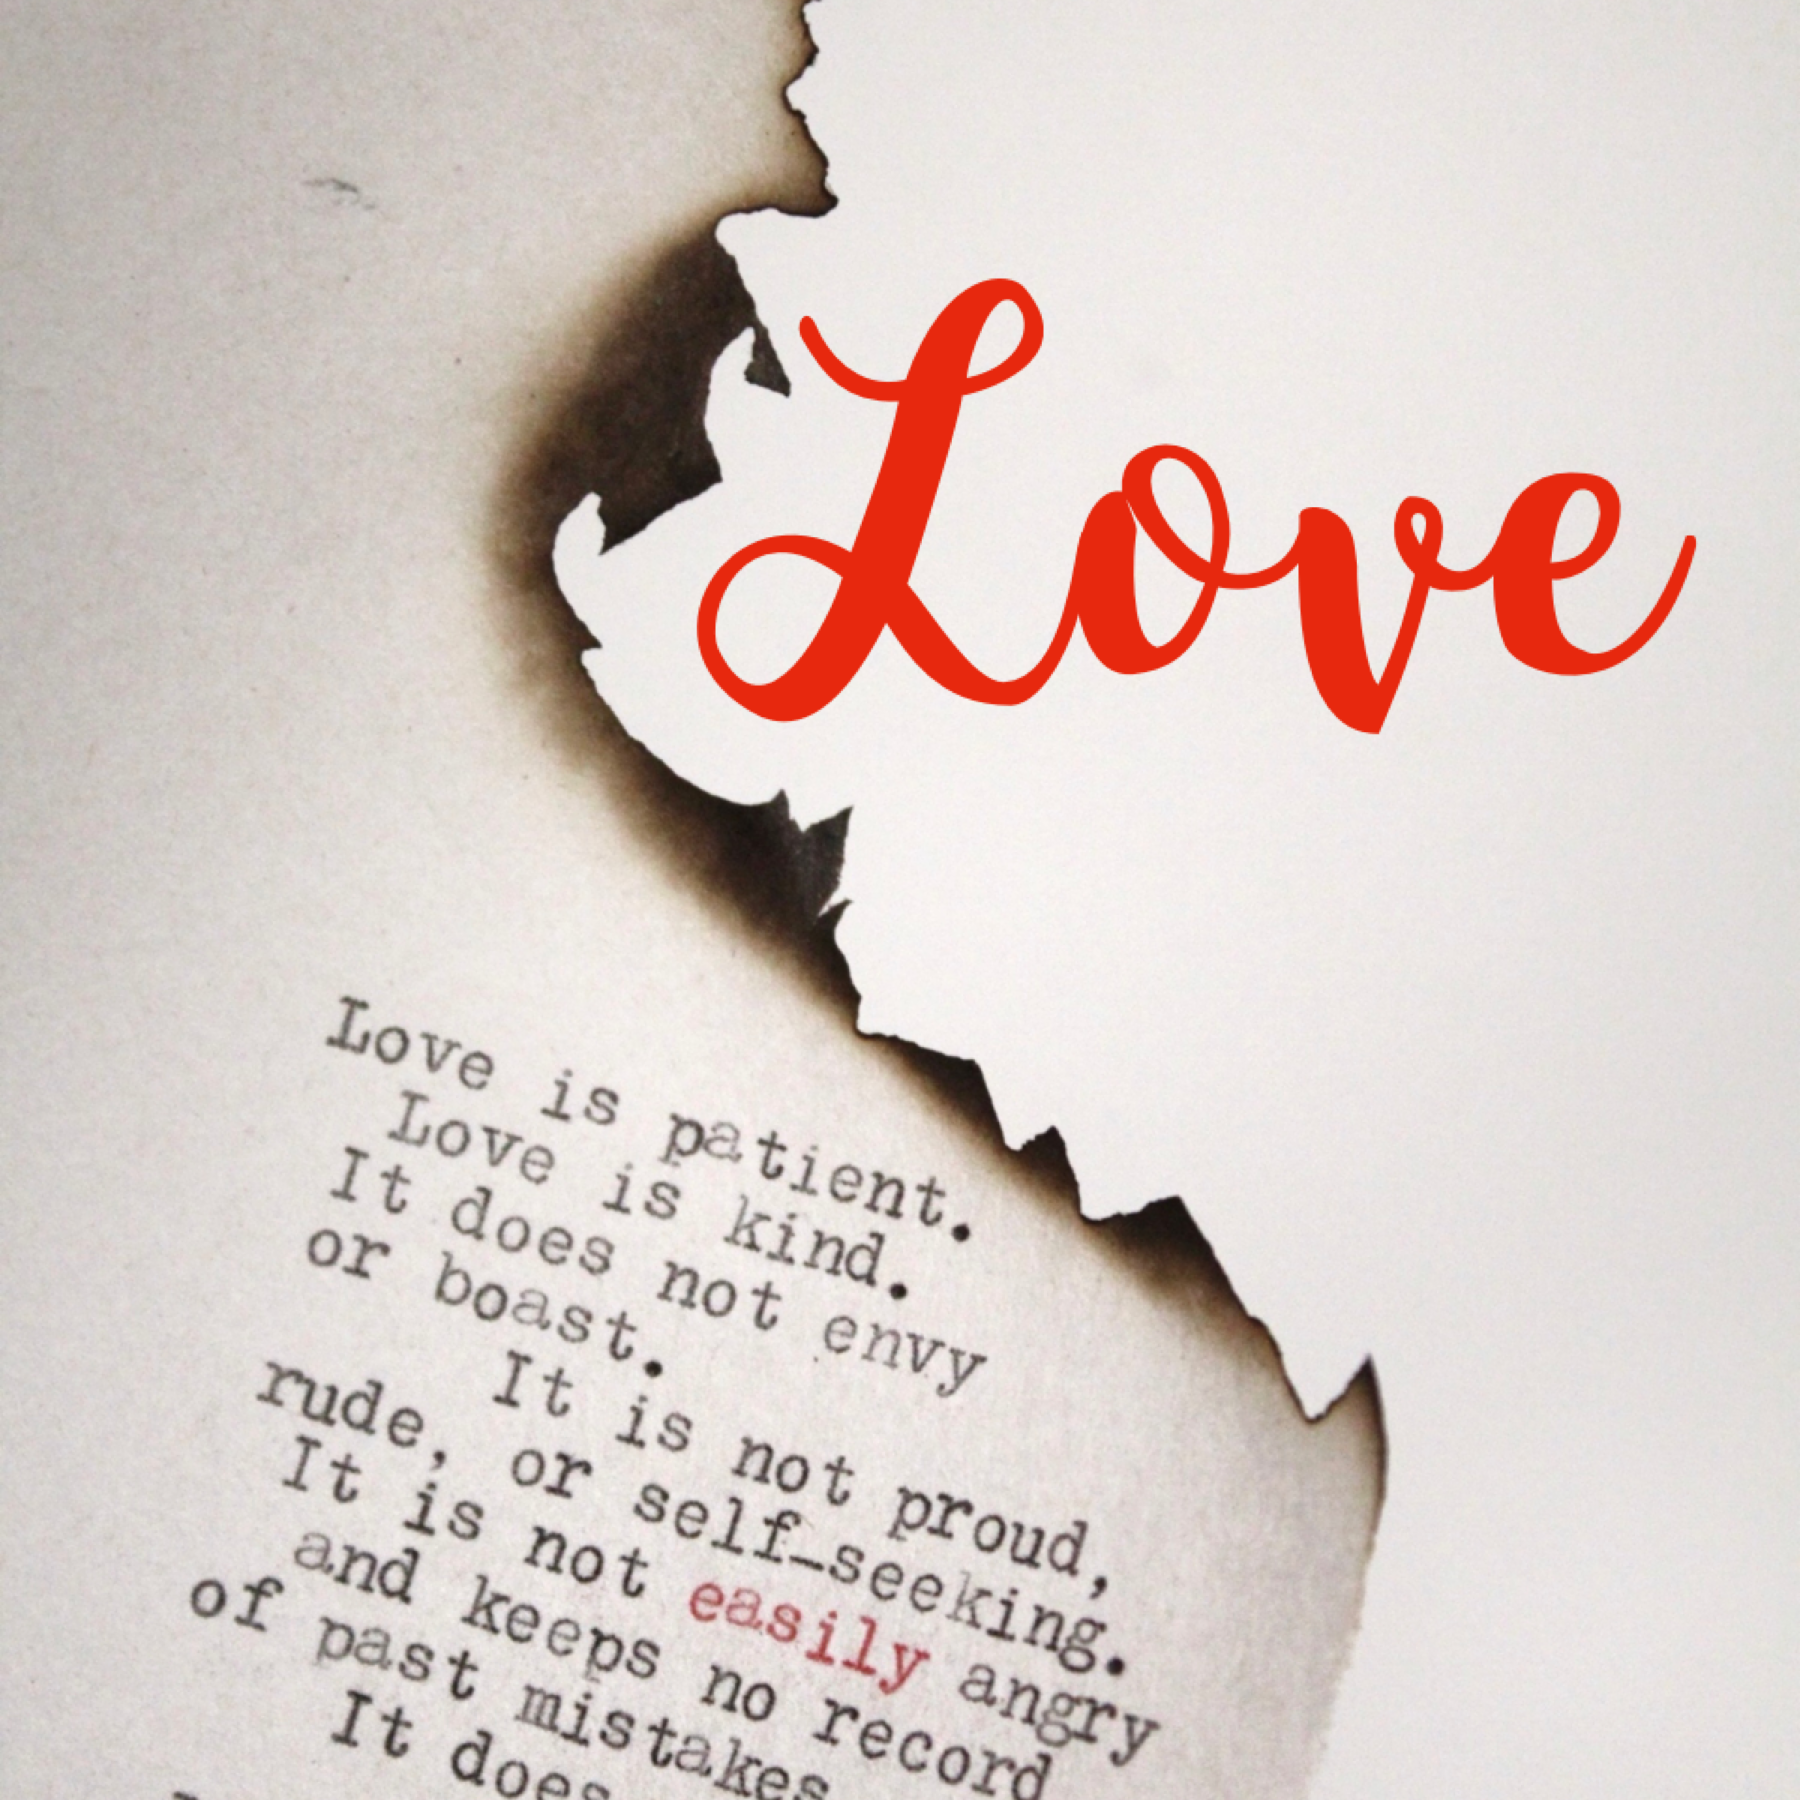 Love
Love is patient.
Love is kind.
It does not envy
or boast.
It is not proud,
rude, or self-seeking.
It is not easily angry
and keeps no record
of past mistakes
It does